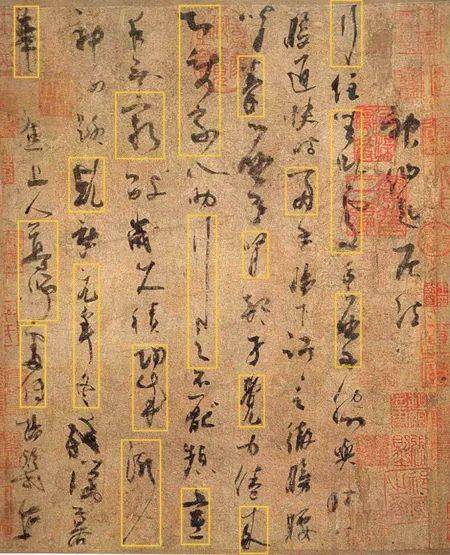 神仙起居法
行住坐卧處手摩脅與肚
腹通快時兩手腸下踞之徹膀腰
背拳摩腎部才覺力倦來
即使家人助行之不厭頻晝
夜無窮數歲久積功成漸入
神仙路乾祐元年冬殘臘暮
華陽焦上人尊師處傳楊凝式